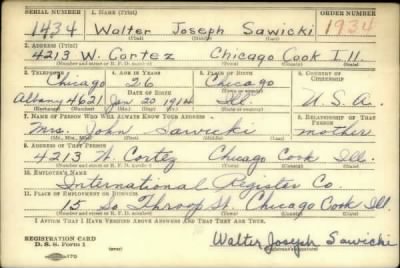 SERIAL NUMBER 1. NAME (Print) ORDER NUMBER
1434 Walter Joseph Sawicki 1934
(First) (Middle) (Last)
2. ADDRESS (Print)
4213 W. Cortez Chicago Cook Ill.
(Number and street or R. F. D. number) (Town) (County) (State)
3. TELEPHONE 4. AGE IN YEARS 5. PLACE OF BIRTH 6. COUNTRY OF CITIZENSHIP
Chicago 26 Chicago
DATE OF BIRTH (Town or county)
Albany 4621 Jan 20 1914 Ill. U.S.A.
(Exchange) (Number) (Mo.) (Day) (Yr.) (State or country)
7. NAME OF PERSON WHO WILL ALWAYS KNOW YOUR ADDRESS 8. RELATIONSHIP OF THAT PERSON
Mrs. John Sawicki mother
(Mr., Mrs., Miss) (First) (Middle) (Last)
9. ADDRESS OF THAT PERSON
4213 W. Cortez Chicago Cook Ill.
(Number and street or R. F. D. number) (Town) (County) (State)
10. EMPLOYER'S NAME
International Register Co.
11. PLACE OF EMPLOYMENT OR BUSINESS
15 So Throop St. Chicago Cook Ill.
(Number and street or R. F. D. number) (Town) (County) (State)
I AFFIRM THAT I HAVE VERIFIED ABOVE ANSWERS AND THAT THEY ARE TRUE.
REGISTRATION CARD
D. S. S. Form 1 Walter Joseph Sawicki
(Registrant's signature)